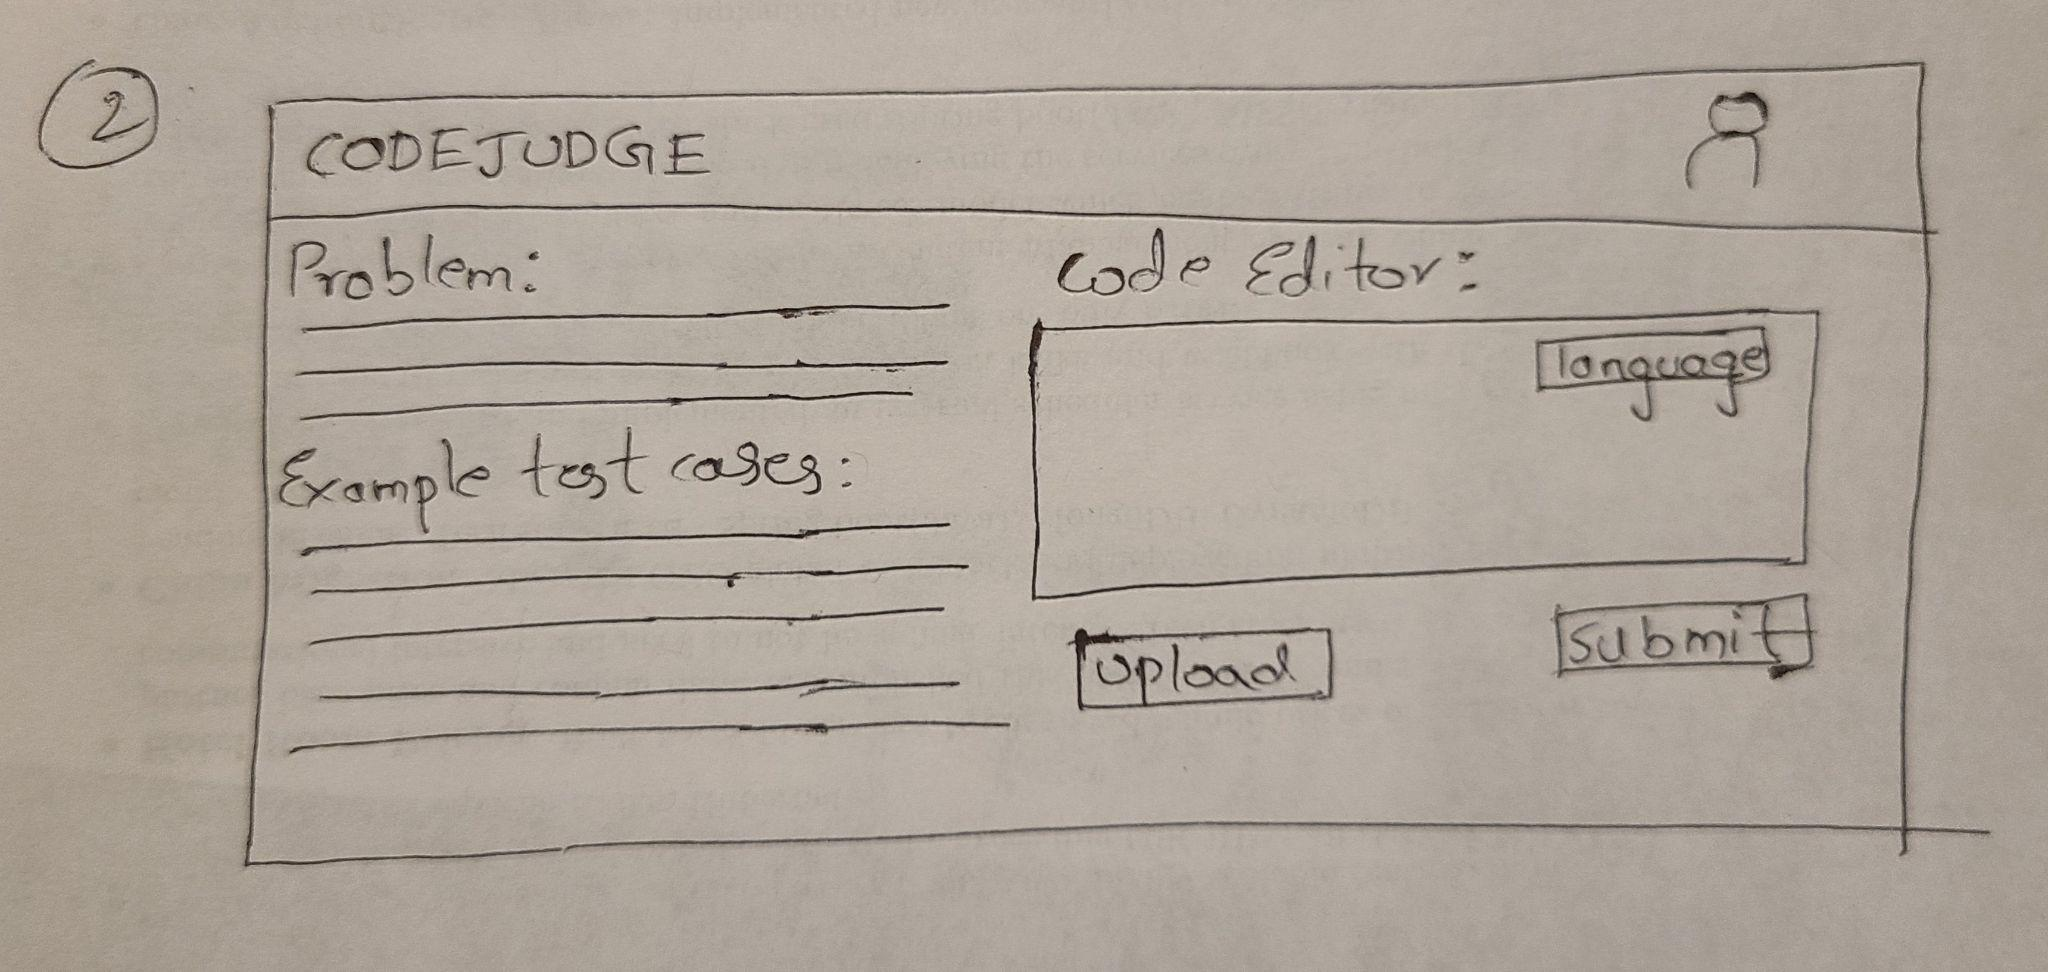 2
CODEJUDGE
Problem:
Example test cases:
Code Editor:
language
Upload
Submit